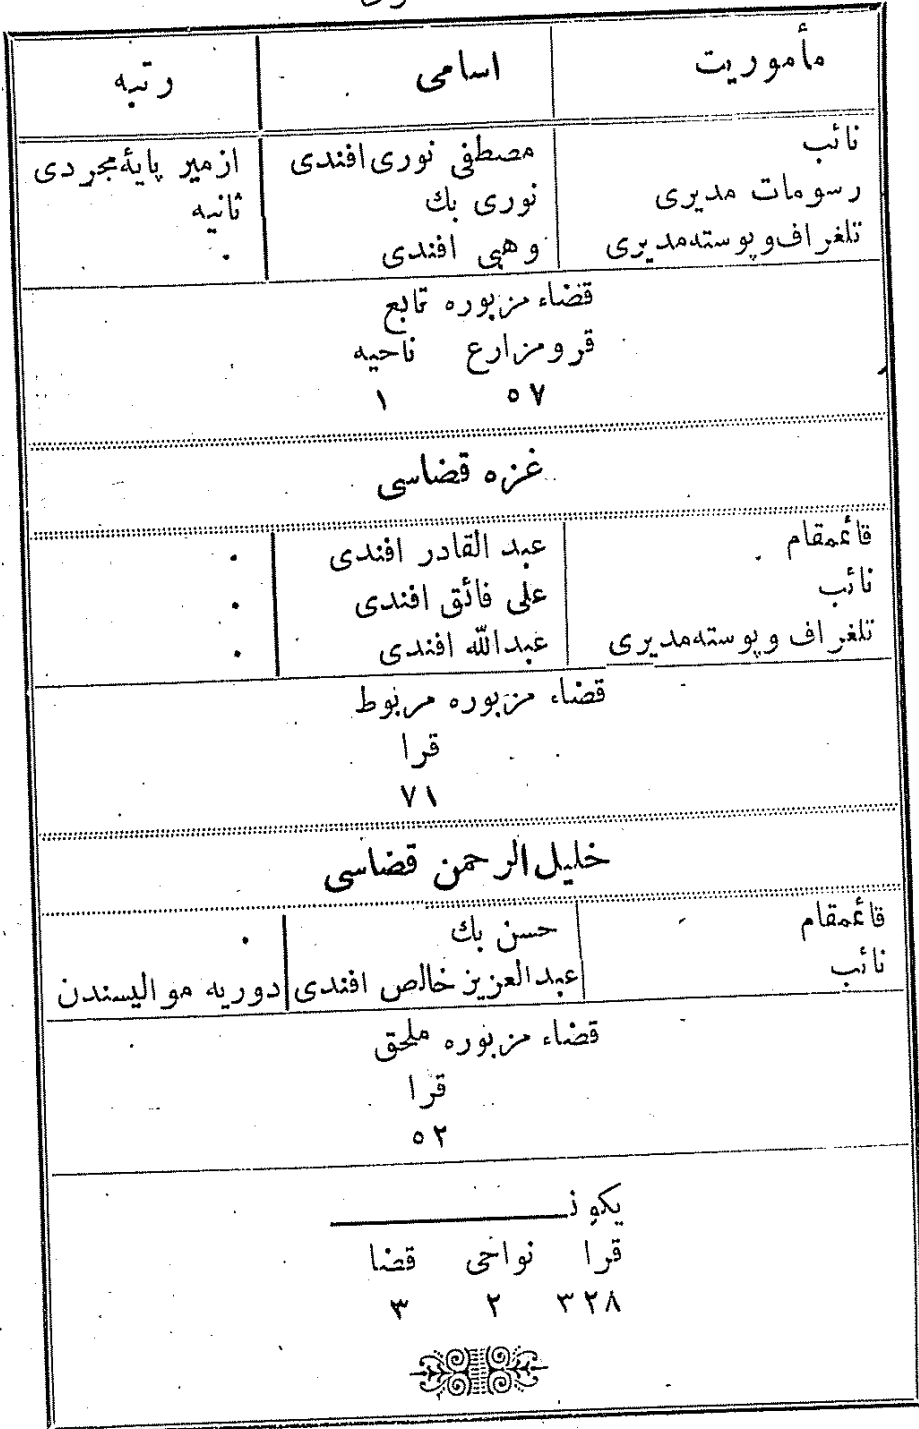 مأموریت اسامی رتبه
نائب مصطفی نوری افندی ازمیر پایهٔ مجردی
رسومات مدیری نوری بك ثانیه
تلغراف و پوسته مدیری وهبی افندی ٠
قضاء مزبوره تابع
قرو مزارع ناحیه
٥٧ ١
غزه قضاسی
قائمقام عبد القادر افندی ٠
نائب علی فائق افندی ٠
تلغراف و پوسته مدیری عبدالله افندی ٠
قضاء مزبوره مربوط
قرا
٧١
خلیل الرحمن قضاسی
قائمقام حسن بك ٠
نائب عبدالعزیز خالص افندی دوریه موالیسندن
قضاء مزبوره ملحق
قرا
٥٢
یکون
قرا نواحی قضا
٣٢٨ ٢ ٣